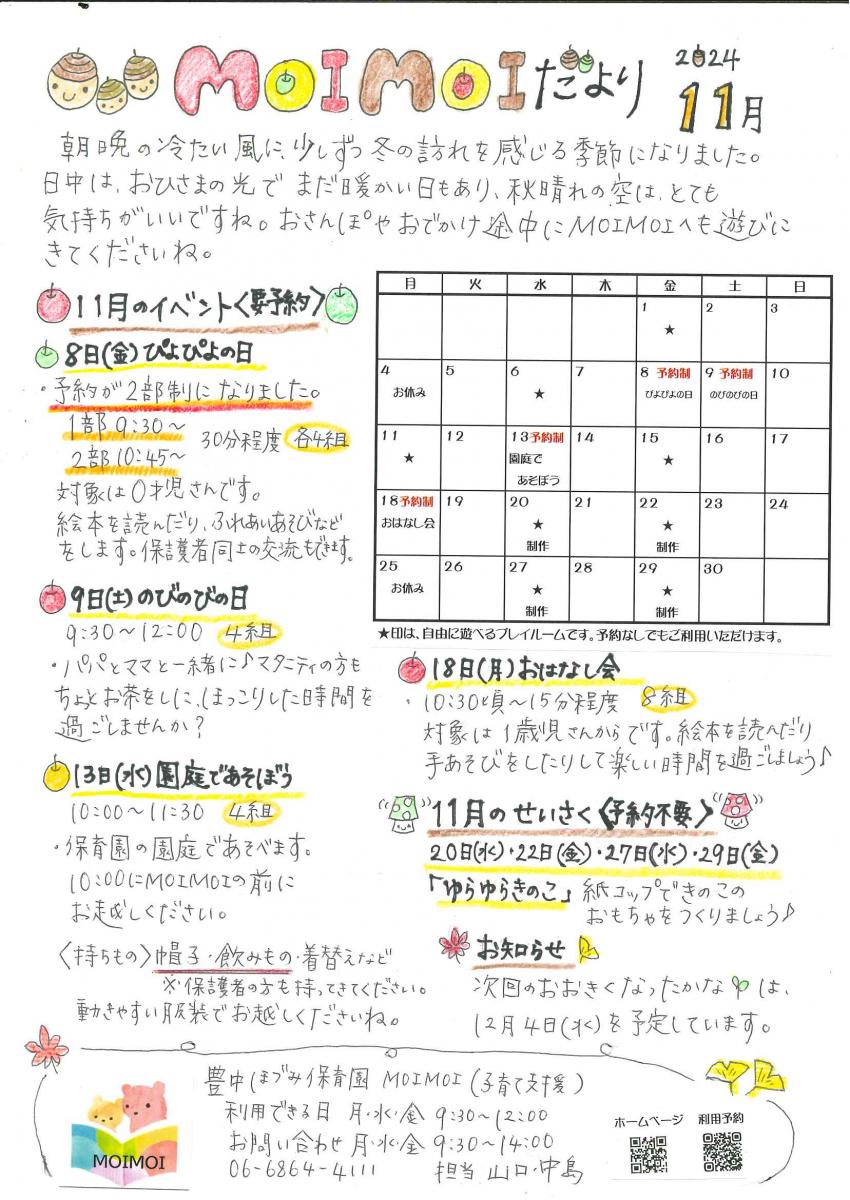 MOIMOIだより 2024 11月
朝晩の冷たい風に、少しずつ冬の訪れを感じる季節になりました。
日中は、おひさまの光で まだ暖かい日もあり、秋晴れの空は、とても
気持ちがいいですね。おさんぽやおでかけ途中にMOIMOIへも遊びに
きてくださいね。
11月のイベント〈要予約〉
8日(金)ぴよぴよの日
・予約が2部制になりました。
1部 9:30〜
2部 10:45〜
30分程度 各4組
対象は0才児さんです。
絵本を読んだり、ふれあいあそびなど
をします。保護者同士の交流もできます。
9日(土)のびのびの日
9:30〜12:00 4組
・パパとママと一緒に♪マタニティの方も
ちょっとお茶をしに、ほっこりした時間を
過ごしませんか?
13日(水)園庭であそぼう
10:00〜11:30 4組
・保育園の園庭であそべます。
10:00にMOIMOIの前に
お越しください。
〈持ちもの〉帽子・飲みもの・着替えなど
※保護者の方も持ってきてください。
動きやすい服装でお越しくださいね。
月 火 水 木 金 土 日
1 2 3
★
4 5 6 7 8 予約制 9 予約制 10
お休み ★ ぴよぴよの日 のびのびの日
11 12 13予約制 14 15 16 17
★ 園庭で ★
あそぼう
18予約制 19 20 21 22 23 24
おはなし会 ★ ★
制作 制作
25 26 27 28 29 30
お休み ★ ★
制作 制作
★印は、自由に遊べるプレイルームです。予約なしでもご利用いただけます。
18日(月)おはなし会
・10:30頃〜15分程度 8組
対象は1歳児さんからです。絵本を読んだり
手あそびをしたりして楽しい時間を過ごしましょう♪
11月のせいさく〈予約不要〉
20日(水)・22日(金)・27日(水)・29日(金)
「ゆらゆらきのこ」紙コップできのこの
おもちゃをつくりましょう♪
お知らせ
次回のおおきくなったかな は、
12月4日(水)を予定しています。
MOIMOI
豊中ほづみ保育園 MOIMOI (子育て支援)
利用できる日 月・水・金 9:30〜12:00
お問い合わせ 月・水・金 9:30〜14:00
06-6864-4111 担当 山口・中島
ホームページ 利用予約